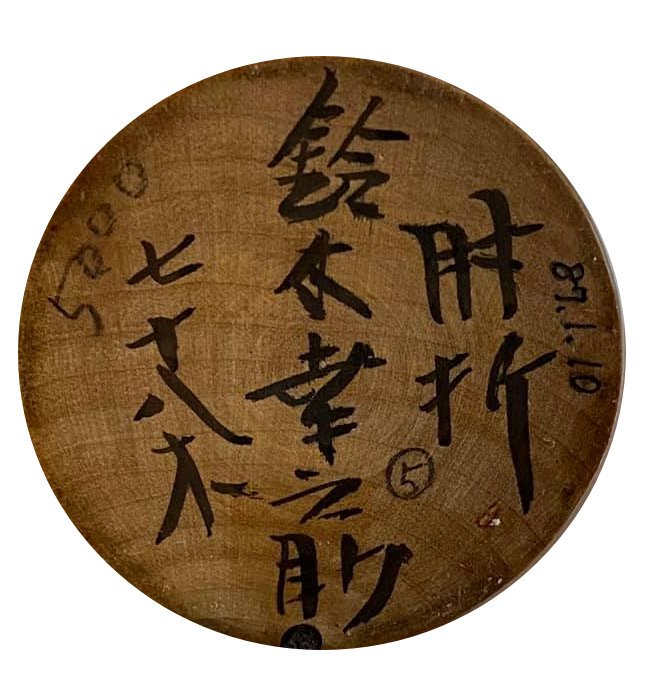 87.1.10
肘折
鈴木幸之助
七十八才
5000
⑤